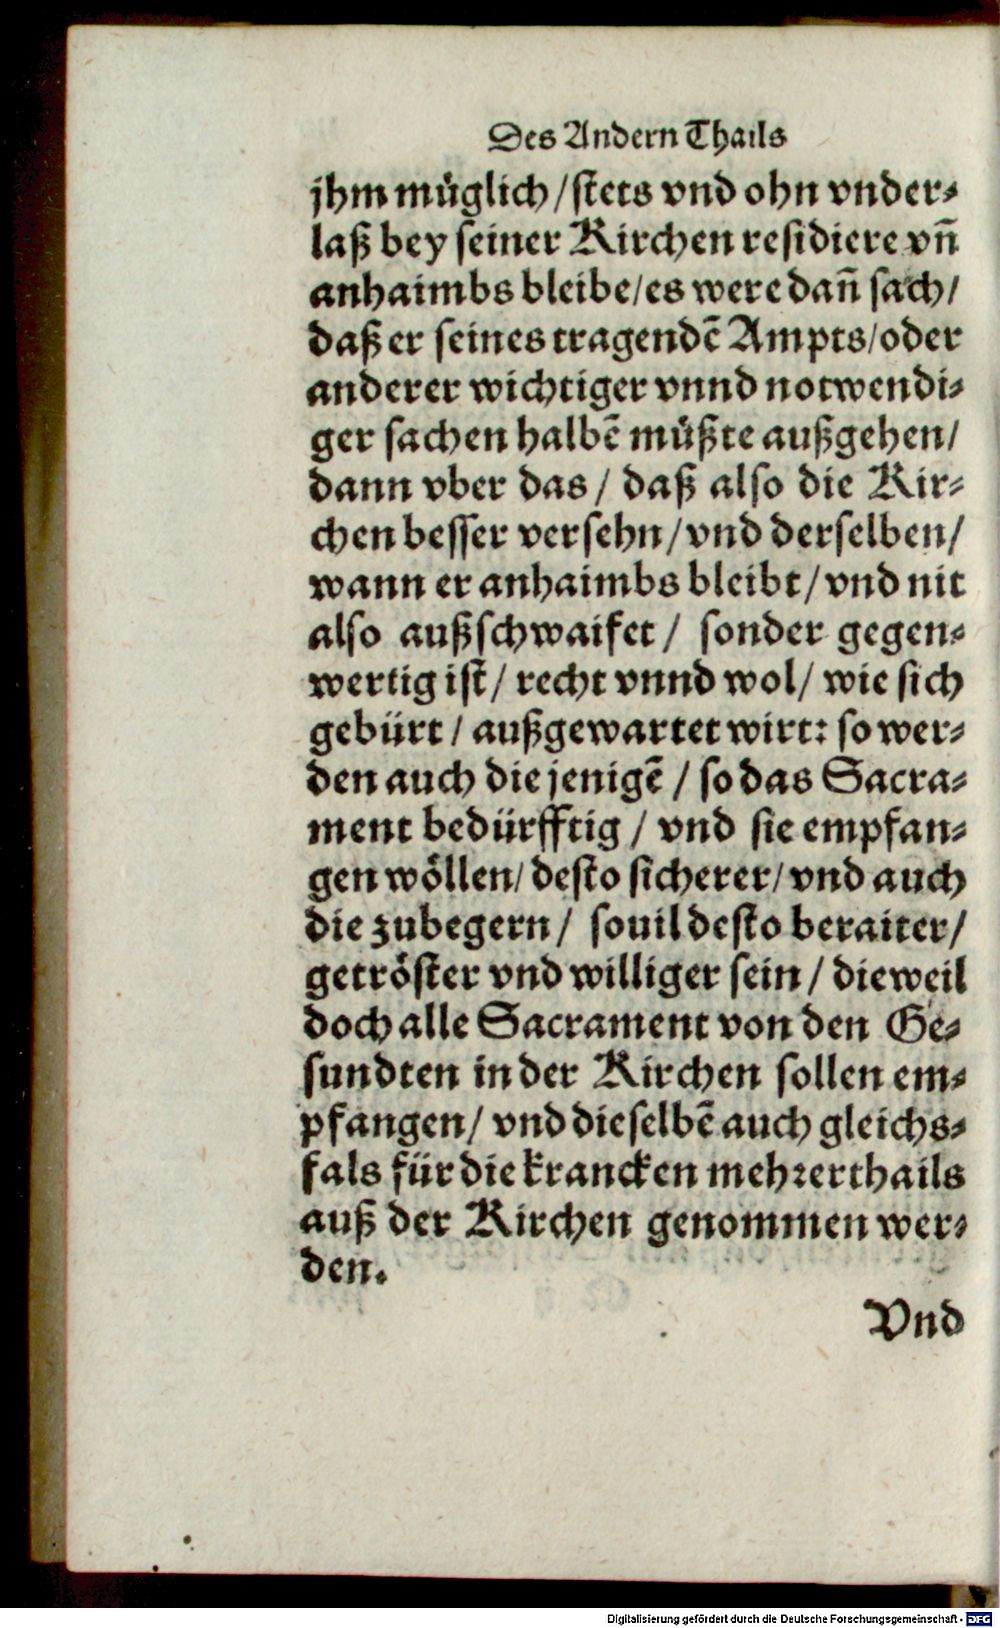 Des Andern Thails
jhm müglich/stets vnd ohn vnder⸗
laß bey seiner Kirchen residiere vñ
anhaimbs bleibe/es were dañ sach/
daß er seines tragendē Ampts/oder
anderer wichtiger vnnd notwendi⸗
ger sachen halbē müßte außgehen/
dann vber das/ daß also die Kir⸗
chen besser versehn/vnd derselben/
wann er anhaimbs bleibt/vnd nit
also außschwaifet/ sonder gegen⸗
wertig ist/ recht vnnd wol/ wie sich
gebürt/ außgewartet wirt: so wer⸗
den auch die jenigē/ so das Sacra⸗
ment bedürfftig/ vnd sie empfan⸗
gen wöllen/ desto sicherer/ vnd auch
die zubegern/ souil desto beraiter/
getröster vnd williger sein/ dieweil
doch alle Sacrament von den Ge⸗
sundten in der Kirchen sollen em⸗
pfangen/ vnd dieselbē auch gleichs⸗
fals für die krancken mehrerthails
auß der Kirchen genommen wer⸗
den.
Vnd
Digitalisierung gefördert durch die Deutsche Forschungsgemeinschaft - DFG